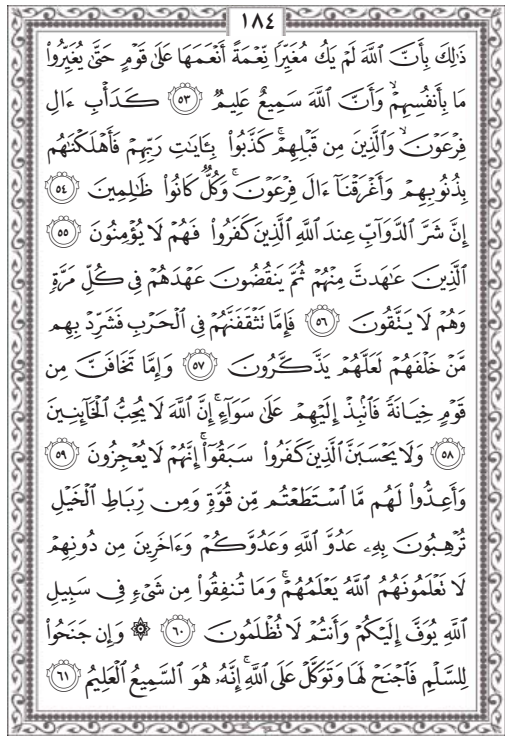 ١٨٤
ذَٰلِكَ بِأَنَّ ٱللَّهَ لَمْ يَكُ مُغَيِّرًا نِّعْمَةً أَنْعَمَهَا عَلَىٰ قَوْمٍ حَتَّىٰ يُغَيِّرُوا۟
مَا بِأَنفُسِهِمْ ۙ وَأَنَّ ٱللَّهَ سَمِيعٌ عَلِيمٌ ٥٣ كَدَأْبِ ءَالِ
فِرْعَوْنَ ۙ وَٱلَّذِينَ مِن قَبْلِهِمْ ۚ كَذَّبُوا۟ بِـَٔايَٰتِ رَبِّهِمْ فَأَهْلَكْنَٰهُم
بِذُنُوبِهِمْ وَأَغْرَقْنَآ ءَالَ فِرْعَوْنَ ۚ وَكُلٌّ كَانُوا۟ ظَٰلِمِينَ ٥٤
إِنَّ شَرَّ ٱلدَّوَآبِّ عِندَ ٱللَّهِ ٱلَّذِينَ كَفَرُوا۟ فَهُمْ لَا يُؤْمِنُونَ ٥٥
ٱلَّذِينَ عَٰهَدتَّ مِنْهُمْ ثُمَّ يَنقُضُونَ عَهْدَهُمْ فِى كُلِّ مَرَّةٍ
وَهُمْ لَا يَتَّقُونَ ٥٦ فَإِمَّا تَثْقَفَنَّهُمْ فِى ٱلْحَرْبِ فَشَرِّدْ بِهِم
مَّنْ خَلْفَهُمْ لَعَلَّهُمْ يَذَّكَّرُونَ ٥٧ وَإِمَّا تَخَافَنَّ مِن
قَوْمٍ خِيَانَةً فَٱنۢبِذْ إِلَيْهِمْ عَلَىٰ سَوَآءٍ ۚ إِنَّ ٱللَّهَ لَا يُحِبُّ ٱلْخَآئِنِينَ
٥٨ وَلَا يَحْسَبَنَّ ٱلَّذِينَ كَفَرُوا۟ سَبَقُوٓا۟ ۚ إِنَّهُمْ لَا يُعْجِزُونَ ٥٩
وَأَعِدُّوا۟ لَهُم مَّا ٱسْتَطَعْتُم مِّن قُوَّةٍ وَمِن رِّبَاطِ ٱلْخَيْلِ
تُرْهِبُونَ بِهِۦ عَدُوَّ ٱللَّهِ وَعَدُوَّكُمْ وَءَاخَرِينَ مِن دُونِهِمْ
لَا تَعْلَمُونَهُمُ ٱللَّهُ يَعْلَمُهُمْ ۚ وَمَا تُنفِقُوا۟ مِن شَىْءٍ فِى سَبِيلِ
ٱللَّهِ يُوَفَّ إِلَيْكُمْ وَأَنتُمْ لَا تُظْلَمُونَ ٦٠ ۞ وَإِن جَنَحُوا۟
لِلسَّلْمِ فَٱجْنَحْ لَهَا وَتَوَكَّلْ عَلَى ٱللَّهِ ۚ إِنَّهُۥ هُوَ ٱلسَّمِيعُ ٱلْعَلِيمُ ٦١